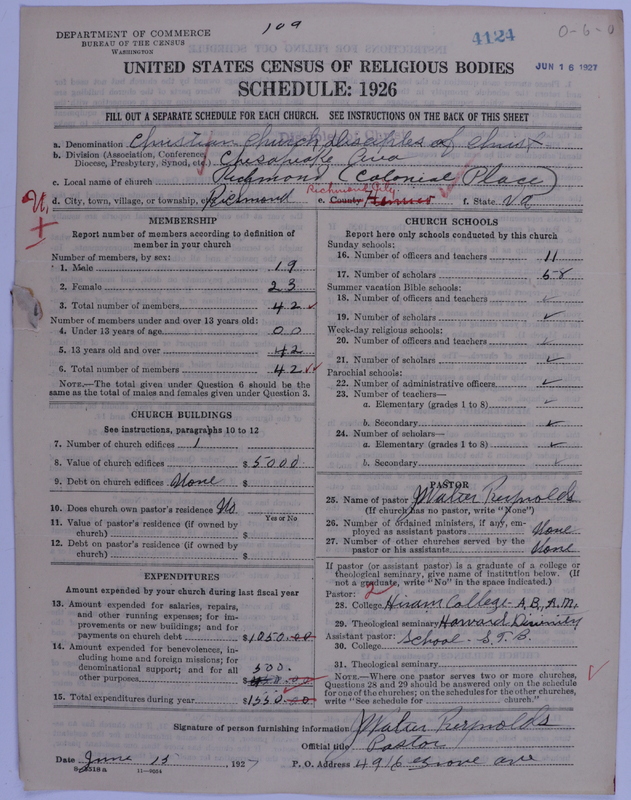 109
DEPARTMENT OF COMMERCE
BUREAU OF THE CENSUS
WASHINGTON
4124
0-6-0
JUN 16 1927
UNITED STATES CENSUS OF RELIGIOUS BODIES
SCHEDULE: 1926
FILL OUT A SEPARATE SCHEDULE FOR EACH CHURCH. SEE INSTRUCTIONS ON THE BACK OF THIS SHEET
a. Denomination Christian Church, Disciples of Christ
b. Division (Association, Conference, Diocese, Presbytery, Synod, etc.) Chesapeake Area
c. Local name of church Richmond (Colonial Place)
d. City, town, village, or township, etc. Richmond e. County Henrico Richmond City f. State Va
MEMBERSHIP
Report number of members according to definition of
member in your church
Number of members, by sex:
1. Male 19
2. Female 23
3. Total number of members 42
Number of members under and over 13 years old:
4. Under 13 years of age 00
5. 13 years old and over 42
6. Total number of members 42
NOTE.—The total given under Question 6 should be the
same as the total of males and females given under Question 3.
CHURCH BUILDINGS
See instructions, paragraphs 10 to 12
7. Number of church edifices 1
8. Value of church edifices $ 5000
9. Debt on church edifices None $
10. Does church own pastor's residence No
Yes or No
11. Value of pastor's residence (if owned by
church) $
12. Debt on pastor's residence (if owned by
church) $
EXPENDITURES
Amount expended by your church during last fiscal year
13. Amount expended for salaries, repairs,
and other running expenses; for im-
provements or new buildings; and for
payments on church debt $ 1050.00
14. Amount expended for benevolences, in-
cluding home and foreign missions; for
denominational support; and for all
other purposes 300. $
15. Total expenditures during year $ 1350.00
CHURCH SCHOOLS
Report here only schools conducted by this church
Sunday schools:
16. Number of officers and teachers 11
17. Number of scholars 58
Summer vacation Bible schools:
18. Number of officers and teachers
19. Number of scholars
Week-day religious schools:
20. Number of officers and teachers
21. Number of scholars
Parochial schools:
22. Number of administrative officers
23. Number of teachers—
a. Elementary (grades 1 to 8)
b. Secondary
24. Number of scholars—
a. Elementary (grades 1 to 8)
b. Secondary
PASTOR
25. Name of pastor J Walter Reynolds
(If church has no pastor, write "None")
26. Number of ordained ministers, if any, em-
ployed as assistant pastors None
27. Number of other churches served by the
pastor or his assistants None
If pastor (or assistant pastor) is a graduate of a college or
theological seminary, give name of institution below. (If
not a graduate, write "No" in the space indicated.)
Pastor: 2
28. College Hiram College - A.B., A.M.
29. Theological seminary Harvard Divinity
Assistant pastor: School - S.T.B.
30. College
31. Theological seminary
NOTE.—Where one pastor serves two or more churches,
Questions 28 and 29 should be answered only on the schedule
for one of the churches; on the schedules for the other churches,
write "See schedule for church."
Signature of person furnishing information J Walter Reynolds
Official title Pastor
Date June 15, 1927 P. O. Address 4916 Grove ave
8-2518a 11-9024